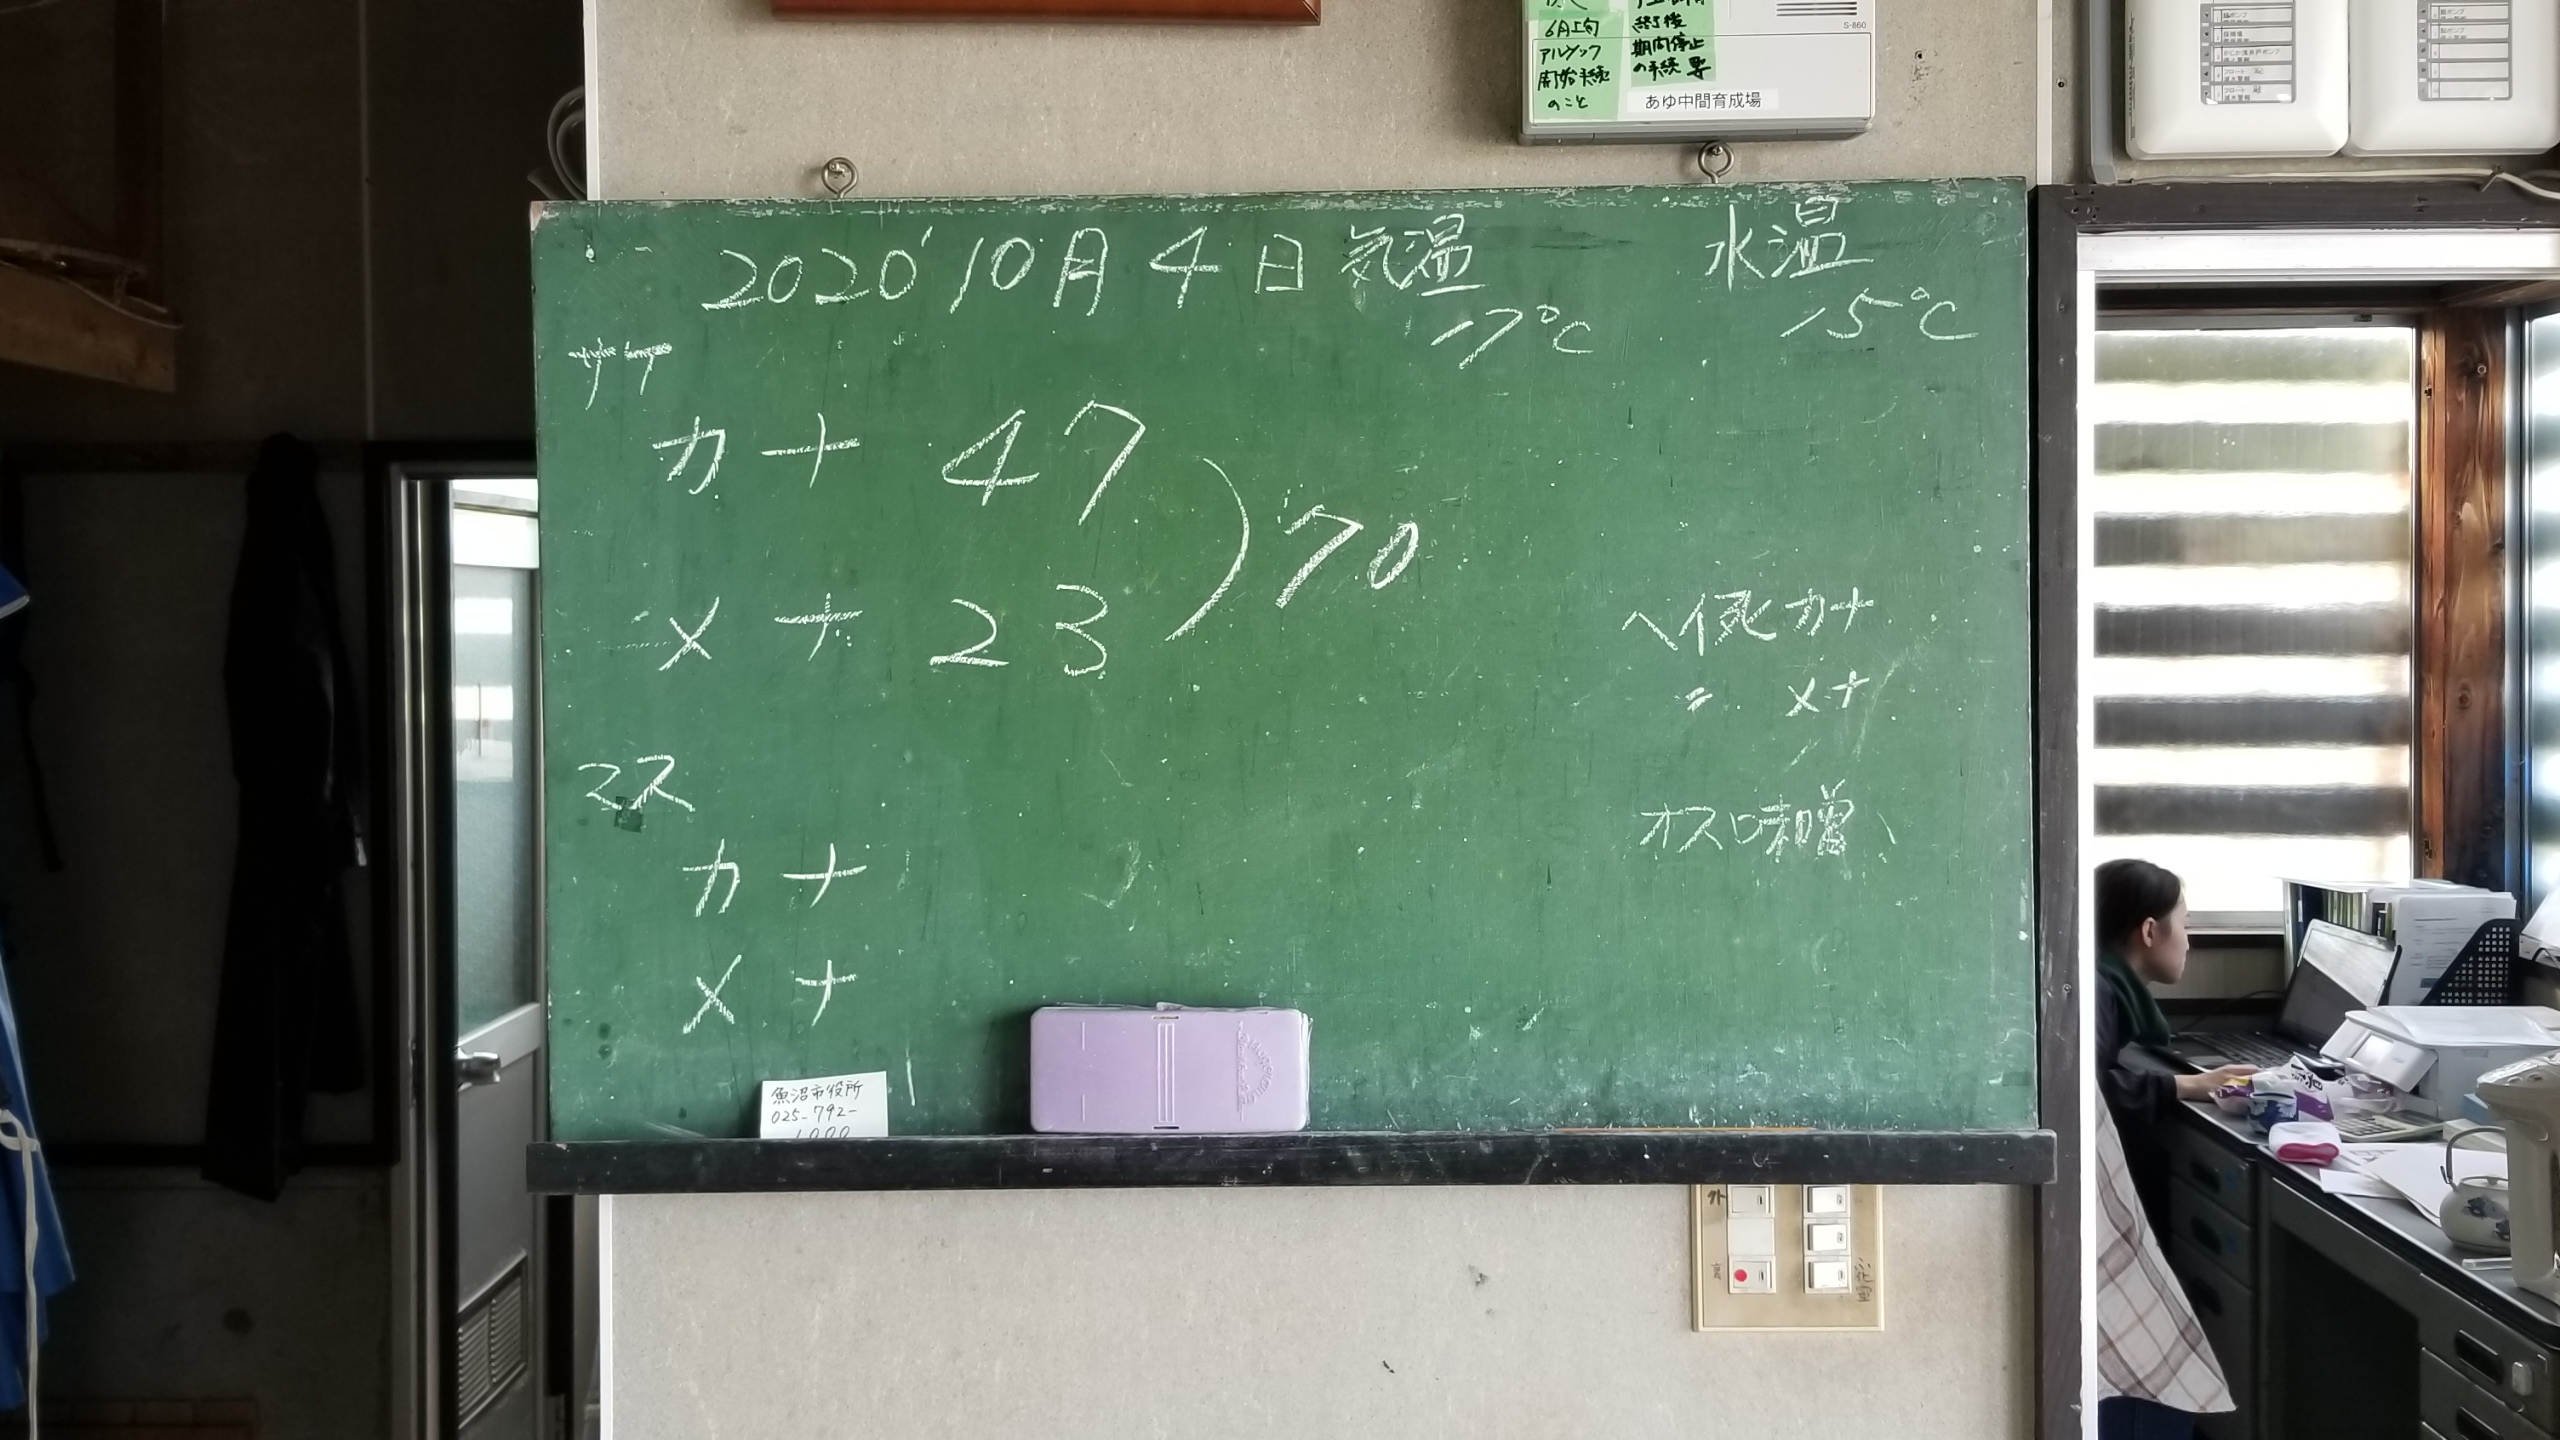 6月上旬
アルソック
開始手続
のこと
終了後
期間停止
の手続 要
S-860
あゆ中間育成場
2020' 10月4日 気温 水温
17℃ 15℃
サケ
カナ 47
70
メナ 23
ヘイ死 カナ
〃 メナ
マス
オス味噌
カナ
メナ
魚沼市役所
025-792-
1000
外